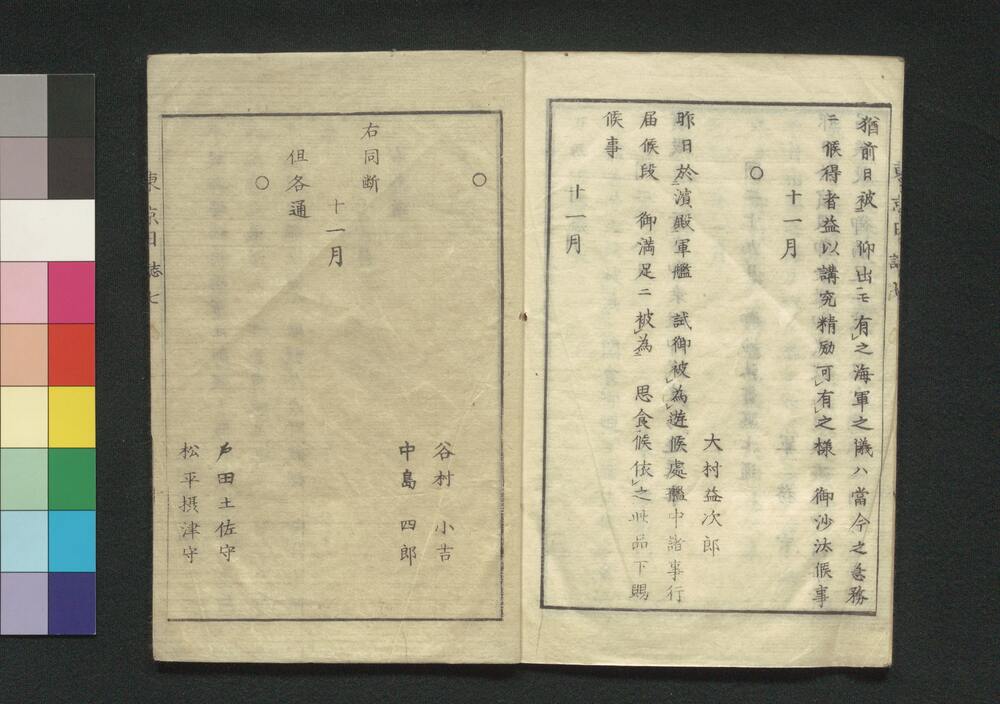 猶前日被 仰出ニモ有之海軍之議ハ當今之急務
ニ候得者益以講究精励可有之様 御沙汰候事
十一月
○
大村益次郎
昨日於濱殿軍艦 試御被為遊候處艦中諸事行
届候段 御満足ニ被為 思食候依之此品下賜
候事
十一月
○
谷村 小吉
中島 四郎
右同断
十一月
但各通
○
戸田土佐守
松平摂津守
東京日誌七